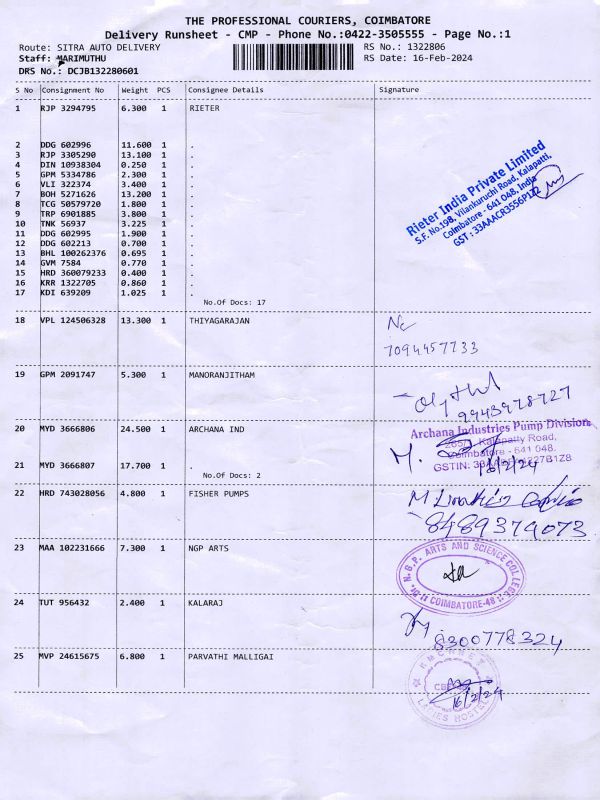 THE PROFESSIONAL COURIERS, COIMBATORE
Delivery Runsheet - CMP - Phone No.:0422-3505555 - Page No.:1
Route: SITRA AUTO DELIVERY RS No.: 1322806
Staff: MARIMUTHU RS Date: 16-Feb-2024
DRS No.: DCJB132280601
S No Consignment No Weight PCS Consignee Details Signature
1 RJP 3294795 6.300 1 RIETER
2 DDG 602996 11.600 1 .
3 RJP 3305290 13.100 1 .
4 DIN 10938304 0.250 1 .
5 GPM 5334786 2.300 1 .
6 VLI 322374 3.400 1 .
7 BOH 5271626 13.200 1 .
8 TCG 50579720 1.800 1 .
9 TRP 6901885 3.800 1 .
10 TNK 56937 3.225 1 .
11 DDG 602995 1.900 1 .
12 DDG 602213 0.700 1 .
13 BHL 100262376 0.695 1 .
14 GVM 7584 0.770 1 .
15 HRD 360079233 0.400 1 .
16 KRR 1322705 0.860 1 .
17 KDI 639209 1.025 1 .
No.Of Docs: 17
Rieter India Private Limited
S.F. No.198, Vilankuruchi Road, Kalapatti,
Coimbatore - 641 048, India
GST : 33AAACR3556P1Z2
18 VPL 124506328 13.300 1 THIYAGARAJAN
7094457733
19 GPM 2091747 5.300 1 MANORANJITHAM
9943978727
20 MYD 3666806 24.500 1 ARCHANA IND
Archana Industries Pump Division
Kalapatty Road,
Coimbatore - 641 048.
GSTIN:
16/2/24
21 MYD 3666807 17.700 1 .
No.Of Docs: 2
22 HRD 743028056 4.800 1 FISHER PUMPS
8489379073
23 MAA 102231666 7.300 1 NGP ARTS
Dr. N.G.P. ARTS AND SCIENCE COLLEGE
COIMBATORE-48
24 TUT 956432 2.400 1 KALARAJ
8300778324
25 MVP 24615675 6.800 1 PARVATHI MALLIGAI
LADIES HOSTEL
16/2/24